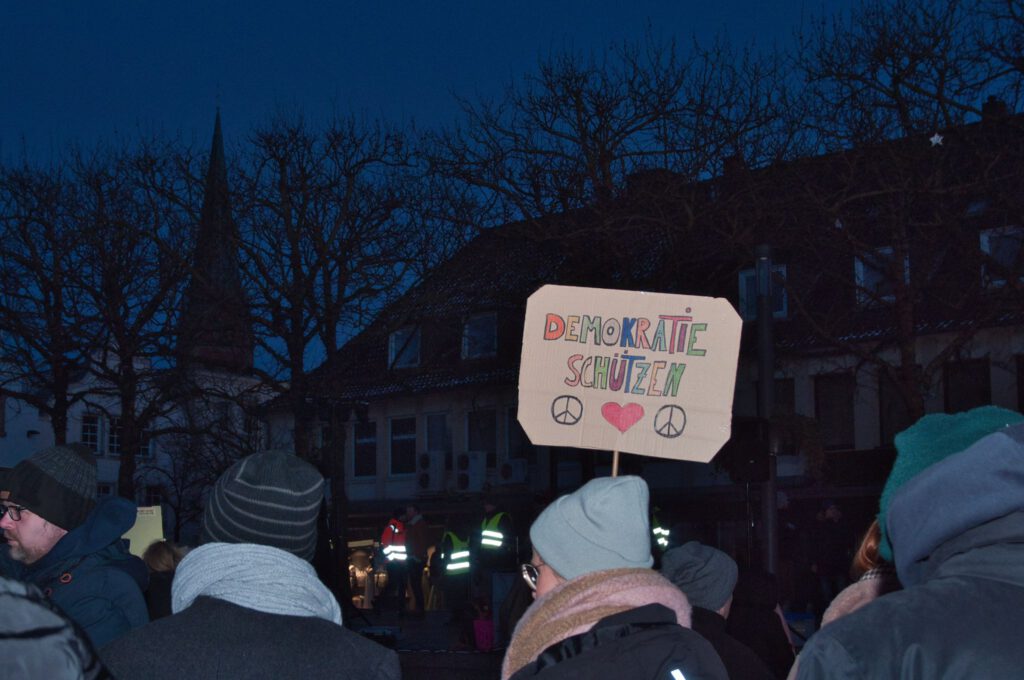 DEMOKRATIE
SCHÜTZEN